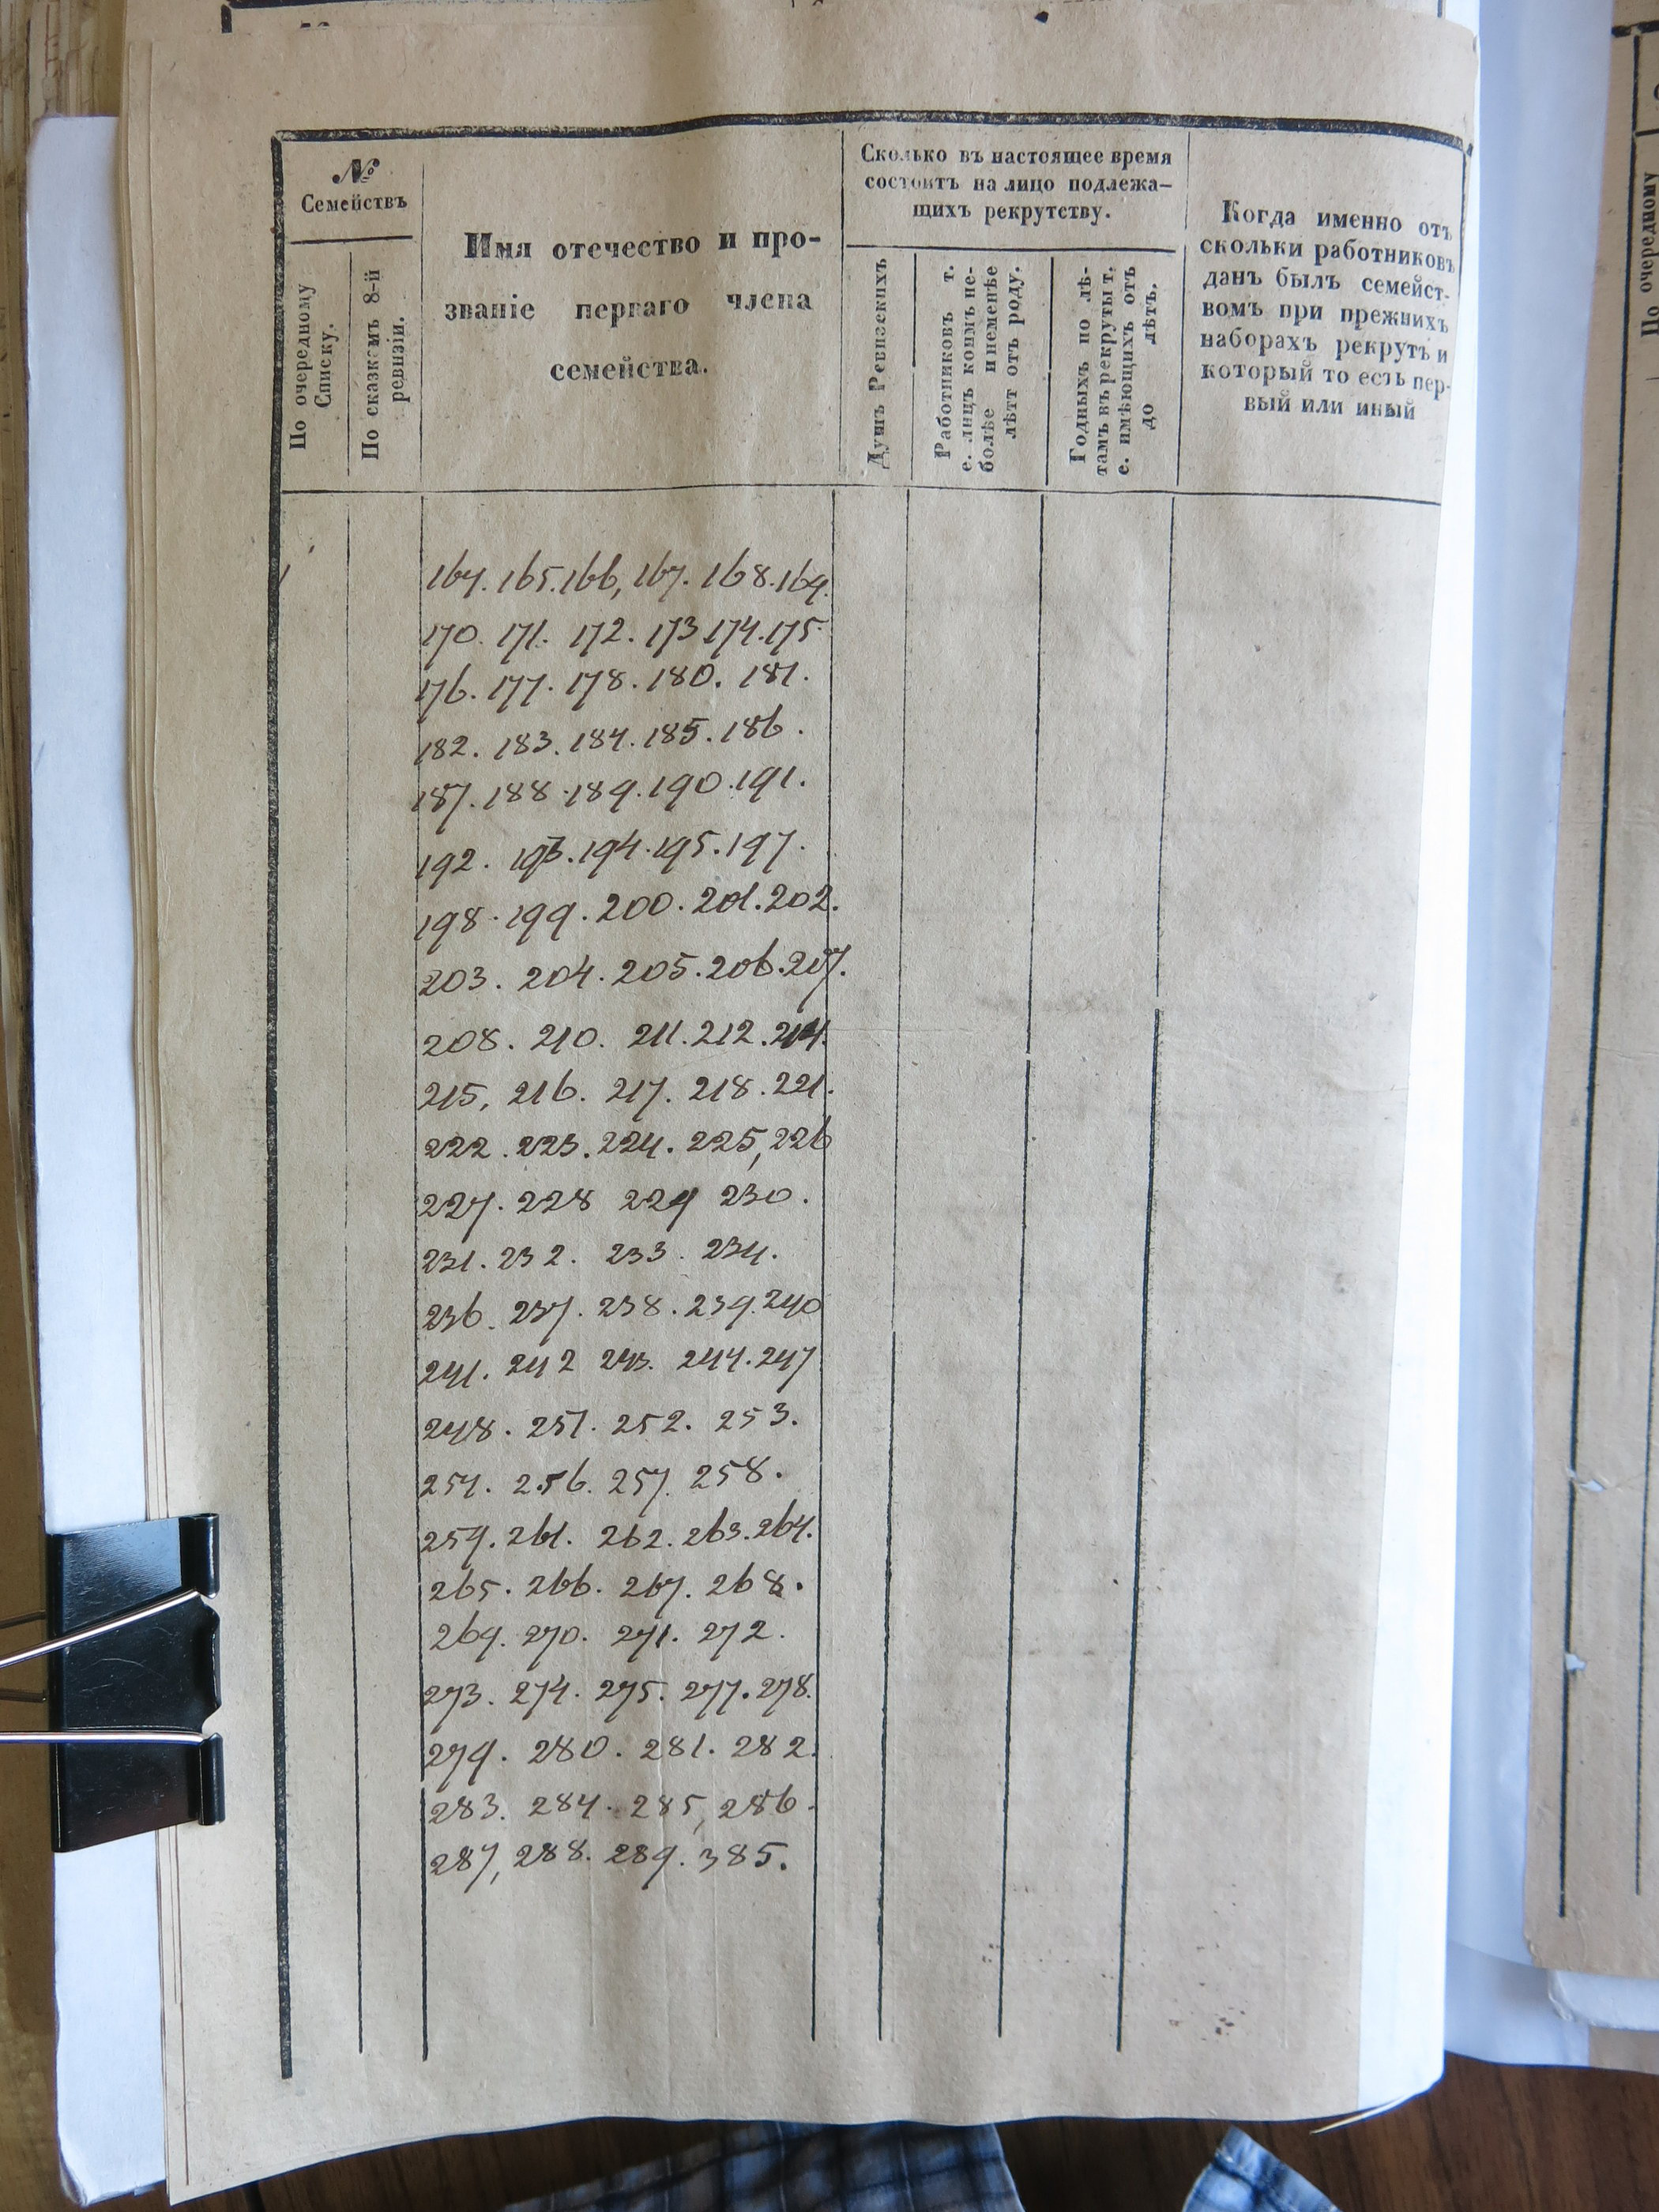 №
Семействъ
По очередному
Списку.
По сказкамъ 8-й
ревизіи.
Имя отечество и про-
званіе перваго члена
семейства.
Сколько въ настоящее время
состоитъ на лицо подлежа-
щихъ рекрутству.
Душъ Ревизскихъ
Работниковъ т.
е. лицъ коимъ не-
болѣе и неменѣе
лѣтт отъ роду.
Годныхъ по лѣ-
тамъ въ рекруты т.
е. имѣющихъ отъ
до лѣтъ.
Когда именно отъ
скольки работниковъ
данъ былъ семейст-
вомъ при прежнихъ
наборахъ рекрутъ и
который то есть пер-
вый или иный
164. 165. 166, 167. 168. 169.
170. 171. 172. 173 174. 175.
176. 177. 178. 180. 181.
182. 183. 184. 185. 186.
187. 188. 189. 190. 191.
192. 193. 194. 195. 197.
198. 199. 200. 201. 202.
203. 204. 205. 206. 207.
208. 210. 211. 212. 214.
215, 216. 217. 218. 221.
222. 223. 224. 225, 226
227. 228 229 230.
231. 232. 233. 234.
236. 237. 238. 239. 240
241. 242 243. 244. 247
248. 251. 252. 253.
254. 256. 257. 258.
259. 261. 262. 263. 264.
265. 266. 267. 268.
269. 270. 271. 272.
273. 274. 275. 277. 278.
279. 280. 281. 282.
283. 284. 285, 286.
287, 288. 289. 385.
По очередному